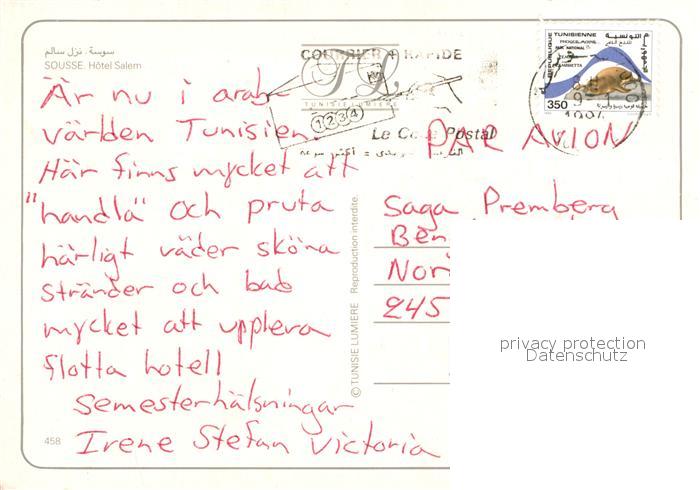 سوسة. نزل سالم
SOUSSE. Hôtel Salem
Är nu i arab-
världen Tunisien.
Här finns mycket att
"handla" och pruta
härligt väder sköna
stränder och bad
mycket att uppleva
flotta hotell
Semesterhälsningar
Irene Stefan Victoria
458
© TUNISIE LUMIERE Reproduction interdite.
TUNISIE LUMIERE
COURRIER + RAPIDE
1234
Le Code Postal
REPUBLIQUE TUNISIENNE
350
1994
PAR AVION
Saga Premberg
Nor
245
privacy protection
Datenschutz